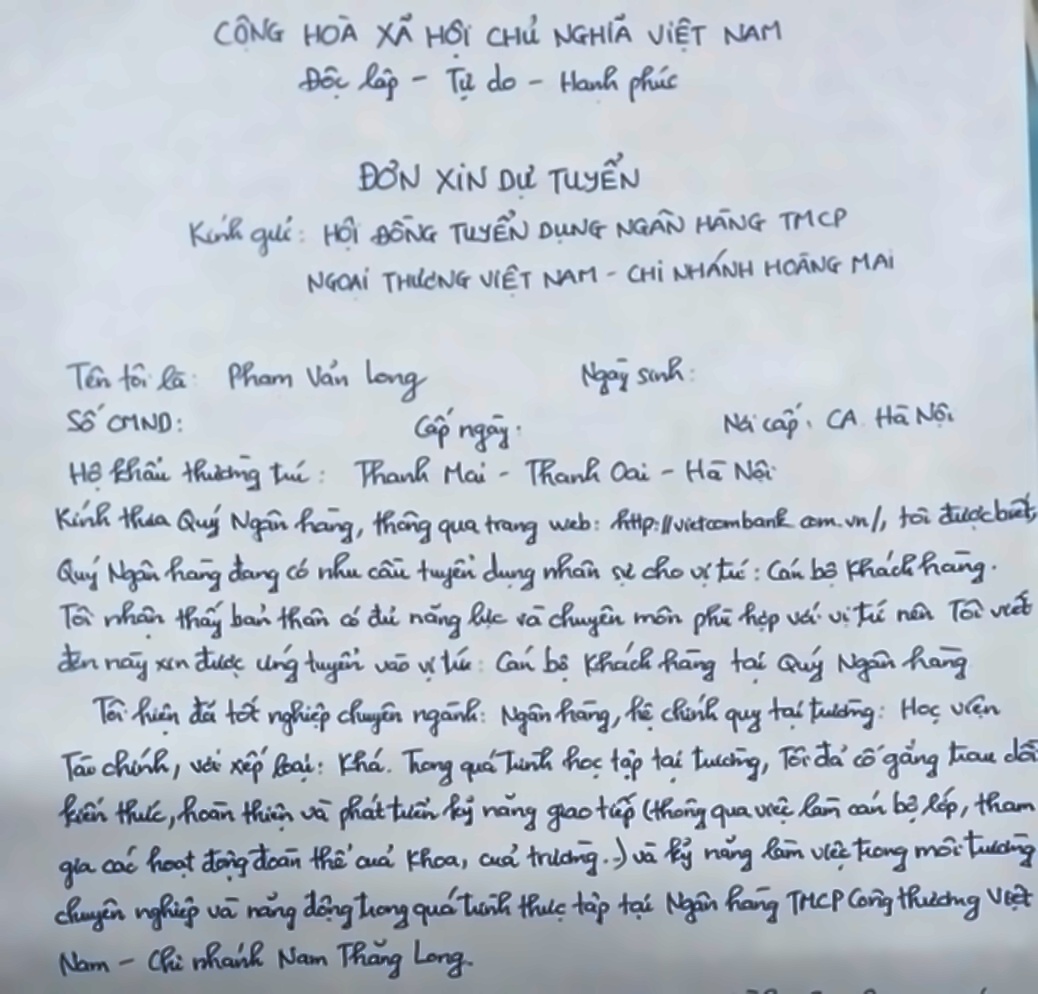 CỘNG HOÀ XÃ HỘI CHỦ NGHĨA VIỆT NAM
Độc lập - Tự do - Hạnh phúc
ĐƠN XIN DỰ TUYỂN
Kính gửi: HỘI ĐỒNG TUYỂN DỤNG NGÂN HÀNG TMCP
NGOẠI THƯƠNG VIỆT NAM - CHI NHÁNH HOÀNG MAI
Tên tôi là: Phạm Văn Long Ngày sinh:
Số CMND: Cấp ngày: Nơi cấp: CA Hà Nội
Hộ khẩu thường trú: Thanh Mai - Thanh Oai - Hà Nội
Kính thưa Quý Ngân hàng, thông qua trang web: http://vietcombank.com.vn/, tôi được biết,
Quý Ngân hàng đang có nhu cầu tuyển dụng nhân sự cho vị trí: Cán bộ Khách hàng.
Tôi nhận thấy bản thân có đủ năng lực và chuyên môn phù hợp với vị trí nên Tôi viết
đơn này xin được ứng tuyển vào vị trí: Cán bộ Khách hàng tại Quý Ngân hàng
Tôi hiện đã tốt nghiệp chuyên ngành: Ngân hàng, hệ chính quy tại trường: Học viện
Tài chính, với xếp loại: Khá. Trong quá trình học tập tại trường, Tôi đã cố gắng trau dồi
kiến thức, hoàn thiện và phát triển kỹ năng giao tiếp (thông qua việc làm cán bộ lớp, tham
gia các hoạt động đoàn thể của Khoa, của trường.) và kỹ năng làm việc trong môi trường
chuyên nghiệp và năng động trong quá trình thực tập tại Ngân hàng TMCP Công thương Việt
Nam - Chi nhánh Nam Thăng Long.